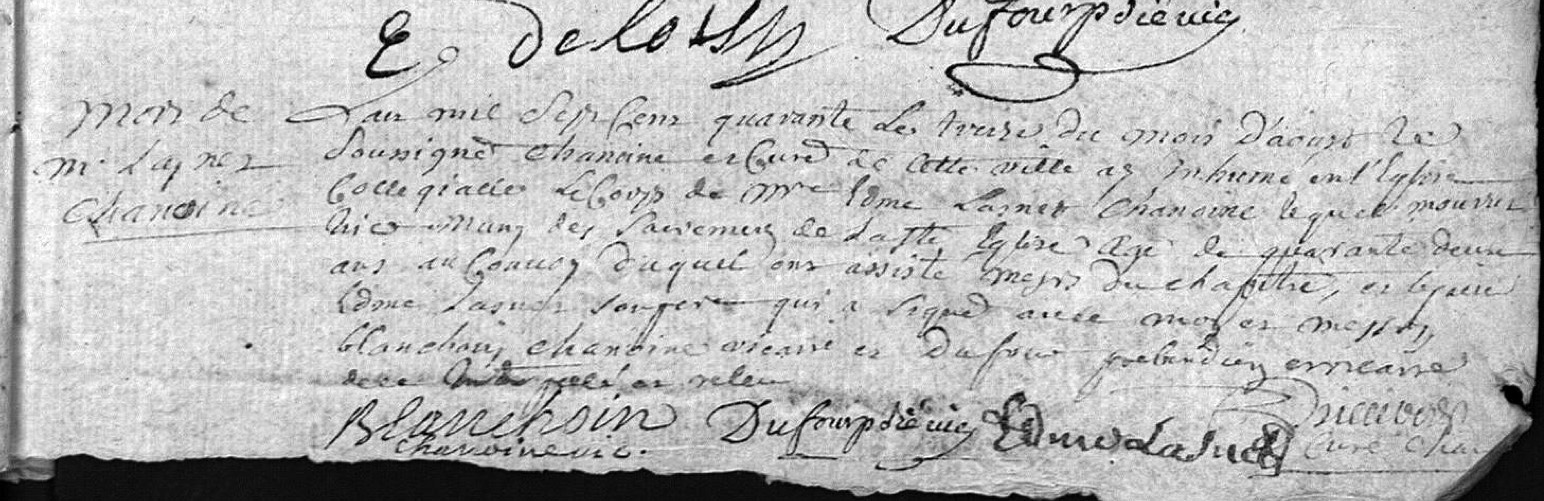 E Delossy Dufour pdiévic
Mort de
mr. Lasnet
Chanoine
Lan mil sept Cent quarante Le treize du mois D'aoust Je
Soussigné Chanoine et Curé de Cette ville ay Inhumé en l'Eglise
Collegialle Le Corps de Mre Edme Lasnet Chanoine lequel mourut
hier muny des Sacremens de Laditte Eglise agé de quarante deux
ans au Convoy duquel ont assisté Messrs du chapitre, et le sieur
Edme Lasnet son pere qui a signé avec moy et messrs
blanchoin chanoine vicaire et Dufour prebendier vicaire
et relu
Blanchoin Dufour pdiévic Edme Lasnet
Chanoine vic. Curé Cha